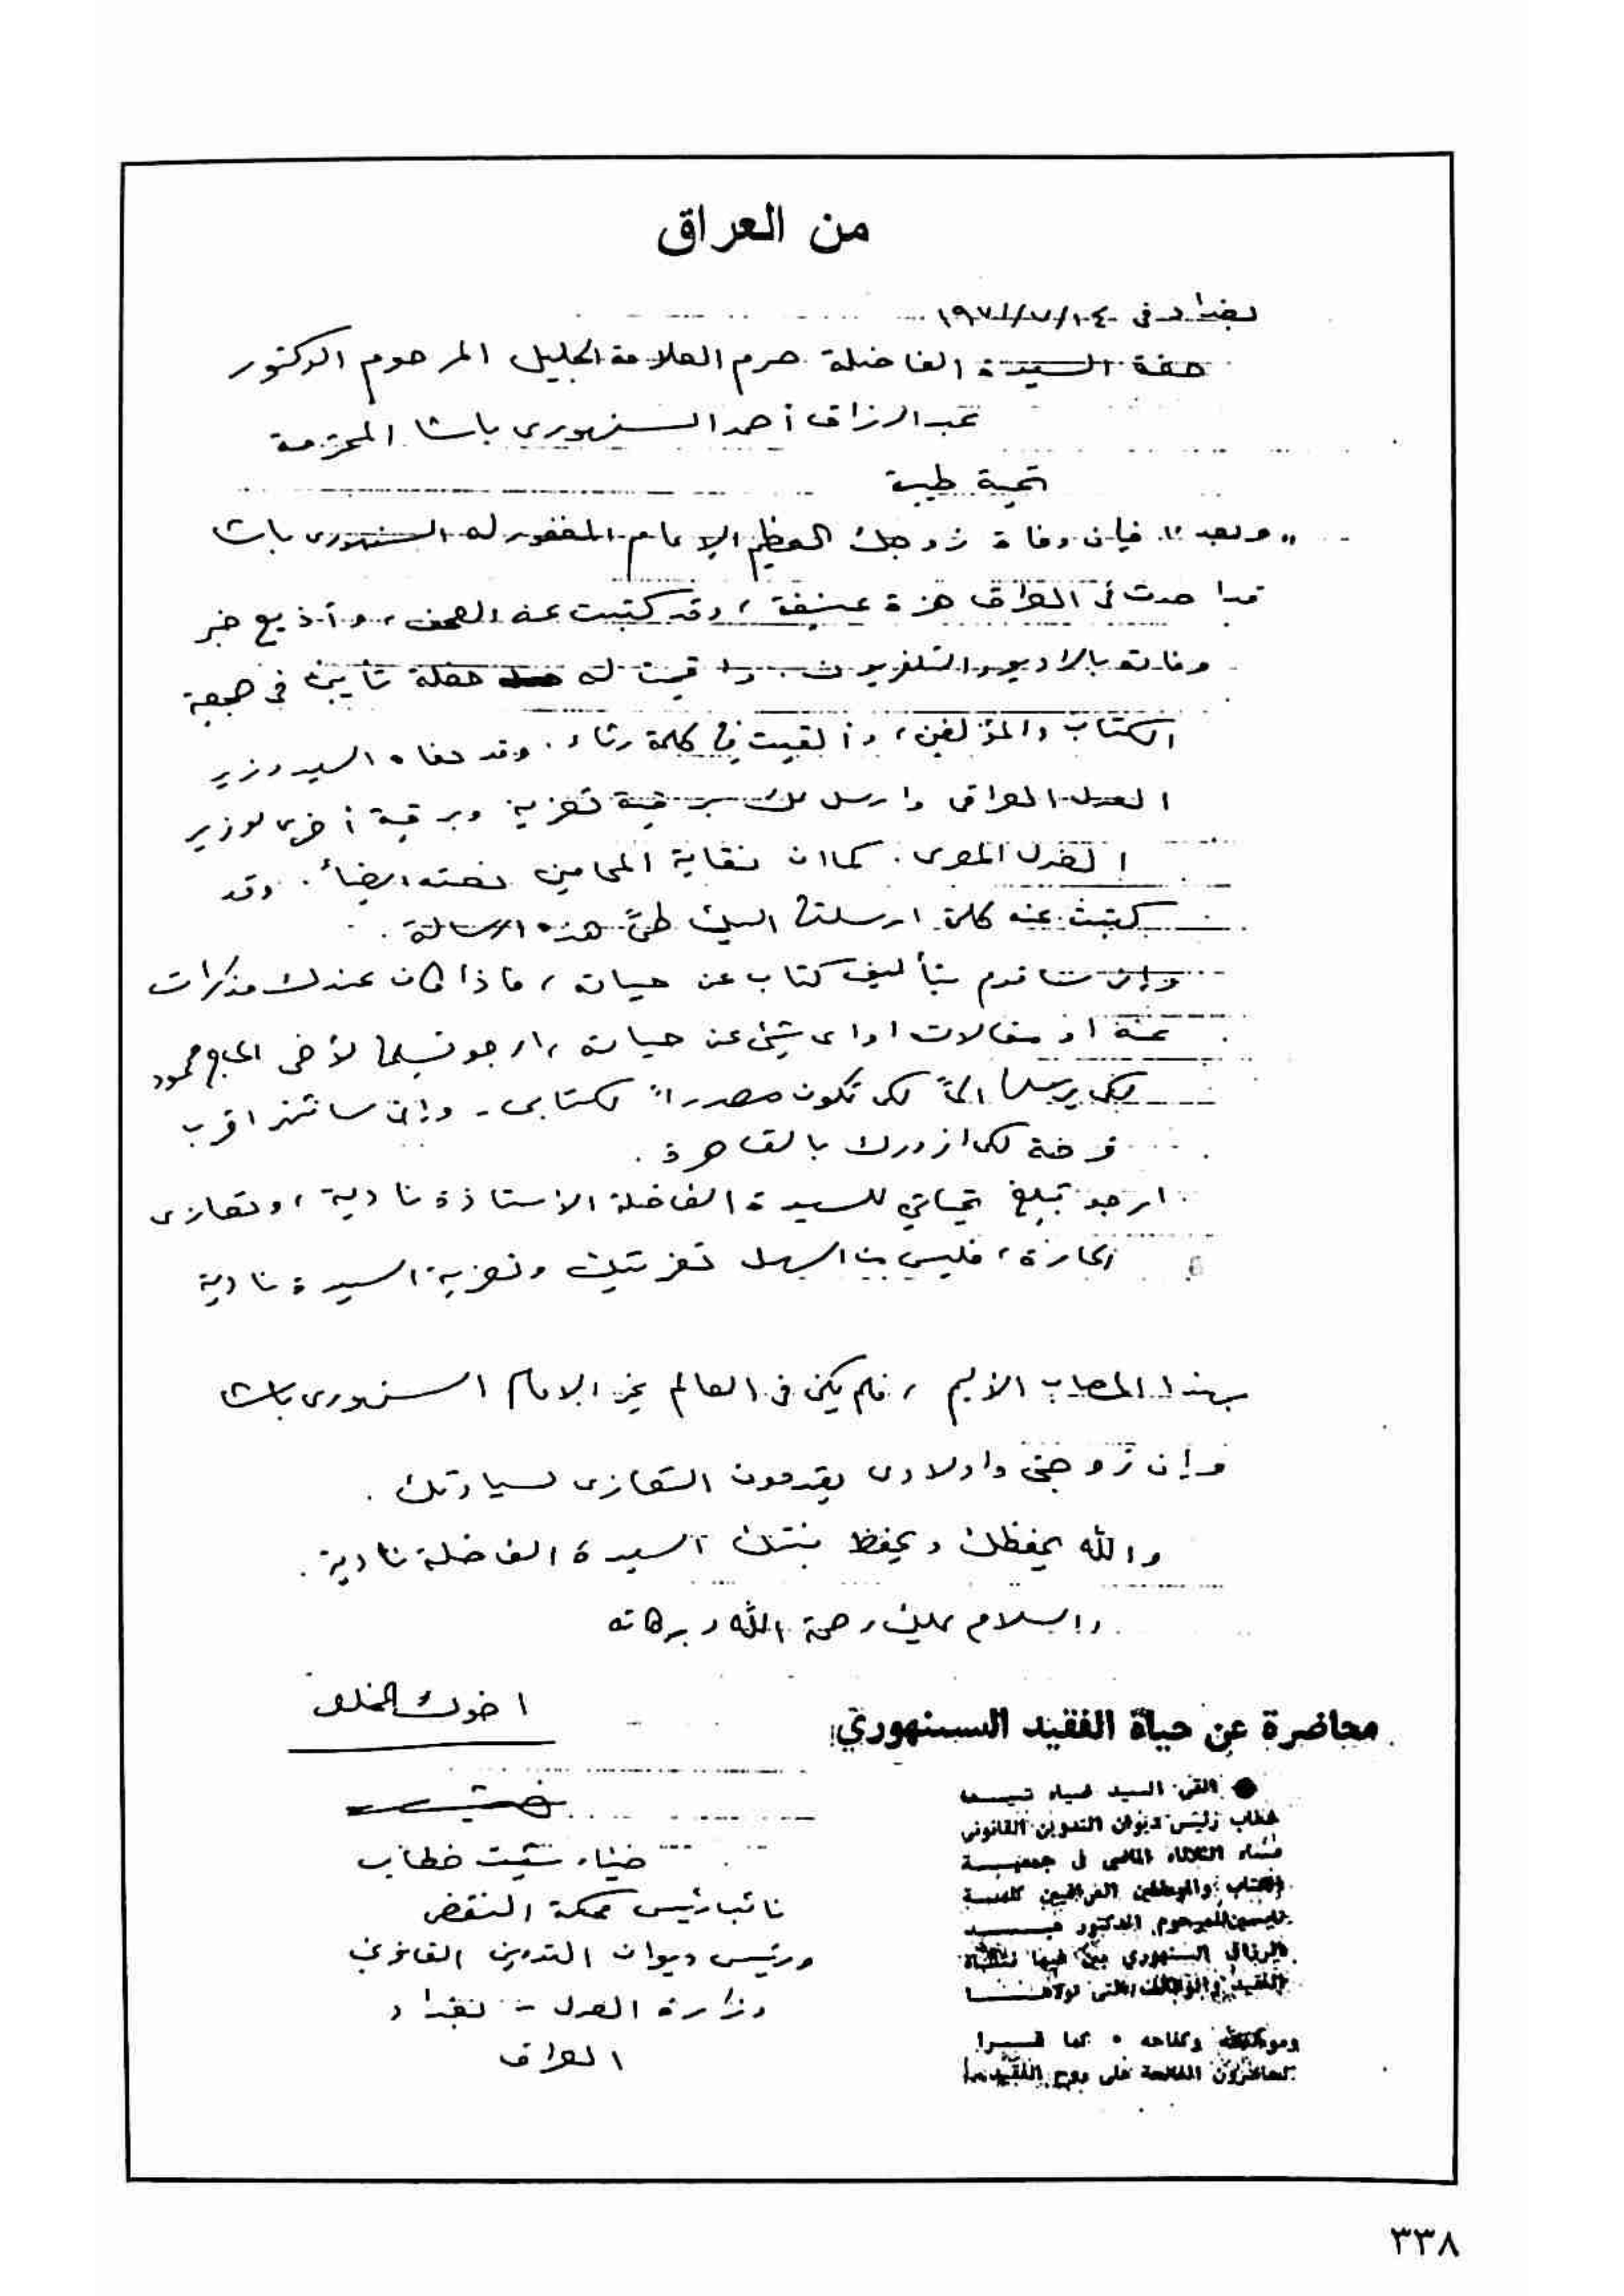 من العراق
بغداد في ١٩٧١/٧/١٤
حضرة السيدة الفاضلة حرم العلامة الجليل المرحوم الدكتور
عبد الرزاق أحمد السنهوري باشا المحترمة
تحية طيبة
"وبعد" فإن وفاة زوجك العظيم الإمام المغفور له السنهوري باشا
قد احدثت في العراق هزة عنيفة، وقد كتبت عنه الصحف، وأذيع خبر
وفاته بالراديو والتلفزيون. واقيمت له حفلة تأبين في جمعية
الكتاب والمؤلفين، وألقيت فيها كلمة رثاء. وقد نعاه السيد وزير
العدل العراقي وارسل لك برقية تعزية وبرقية أخرى لوزير
العدل المصري. كما ان نقابة المحامين نعته ايضاً. وقد
كتبت عنه كلمة ارسلتها اليك طي هذه الرسالة.
وإني سأقوم بتأليف كتاب عن حياته، فاذا كان عندك مذكرات
عنه او مقالات او اي شيء عن حياته، ارجو تسليمها لأخي الحاج محمود
لكي يرسلها اليّ لكي تكون مصدراً لكتابي. وإني سأنتهز اقرب
فرصة لكي ازورك بالقاهرة.
ارجو تبليغ تحياتي للسيدة الفاضلة الاستاذة نادية، وتعازي
الحارة، فليس من السهل تعزيتك وتعزية السيدة نادية
بهذا المصاب الأليم، فلم يكن في العالم غير الإمام السنهوري باشا
وإن زوجتي واولادي يقدمون التعازي لسيادتك.
والله يحفظك ويحفظ بنتك السيدة الفاضلة نادية.
والسلام عليك ورحمة الله وبركاته
اخوك المخلص
ضياء شيت خطاب
نائب رئيس محكمة النقض
ورئيس ديوان التدوين القانوني
وزارة العدل - بغداد
العراق
محاضرة عن حياة الفقيد السنهوري
● القى السيد ضياء شيت
خطاب رئيس ديوان التدوين القانوني
مساء الثلاثاء الماضي في جمعية
الكتاب والمؤلفين العراقيين كلمة
تأبين للمرحوم الدكتور عبد
الرزاق السنهوري بين فيها نشأة
الفقيد والوظائف التي تولاها
ومؤلفاته وكفاحه • كما قرأ
الحاضرون الفاتحة على روح الفقيد
٣٣٨